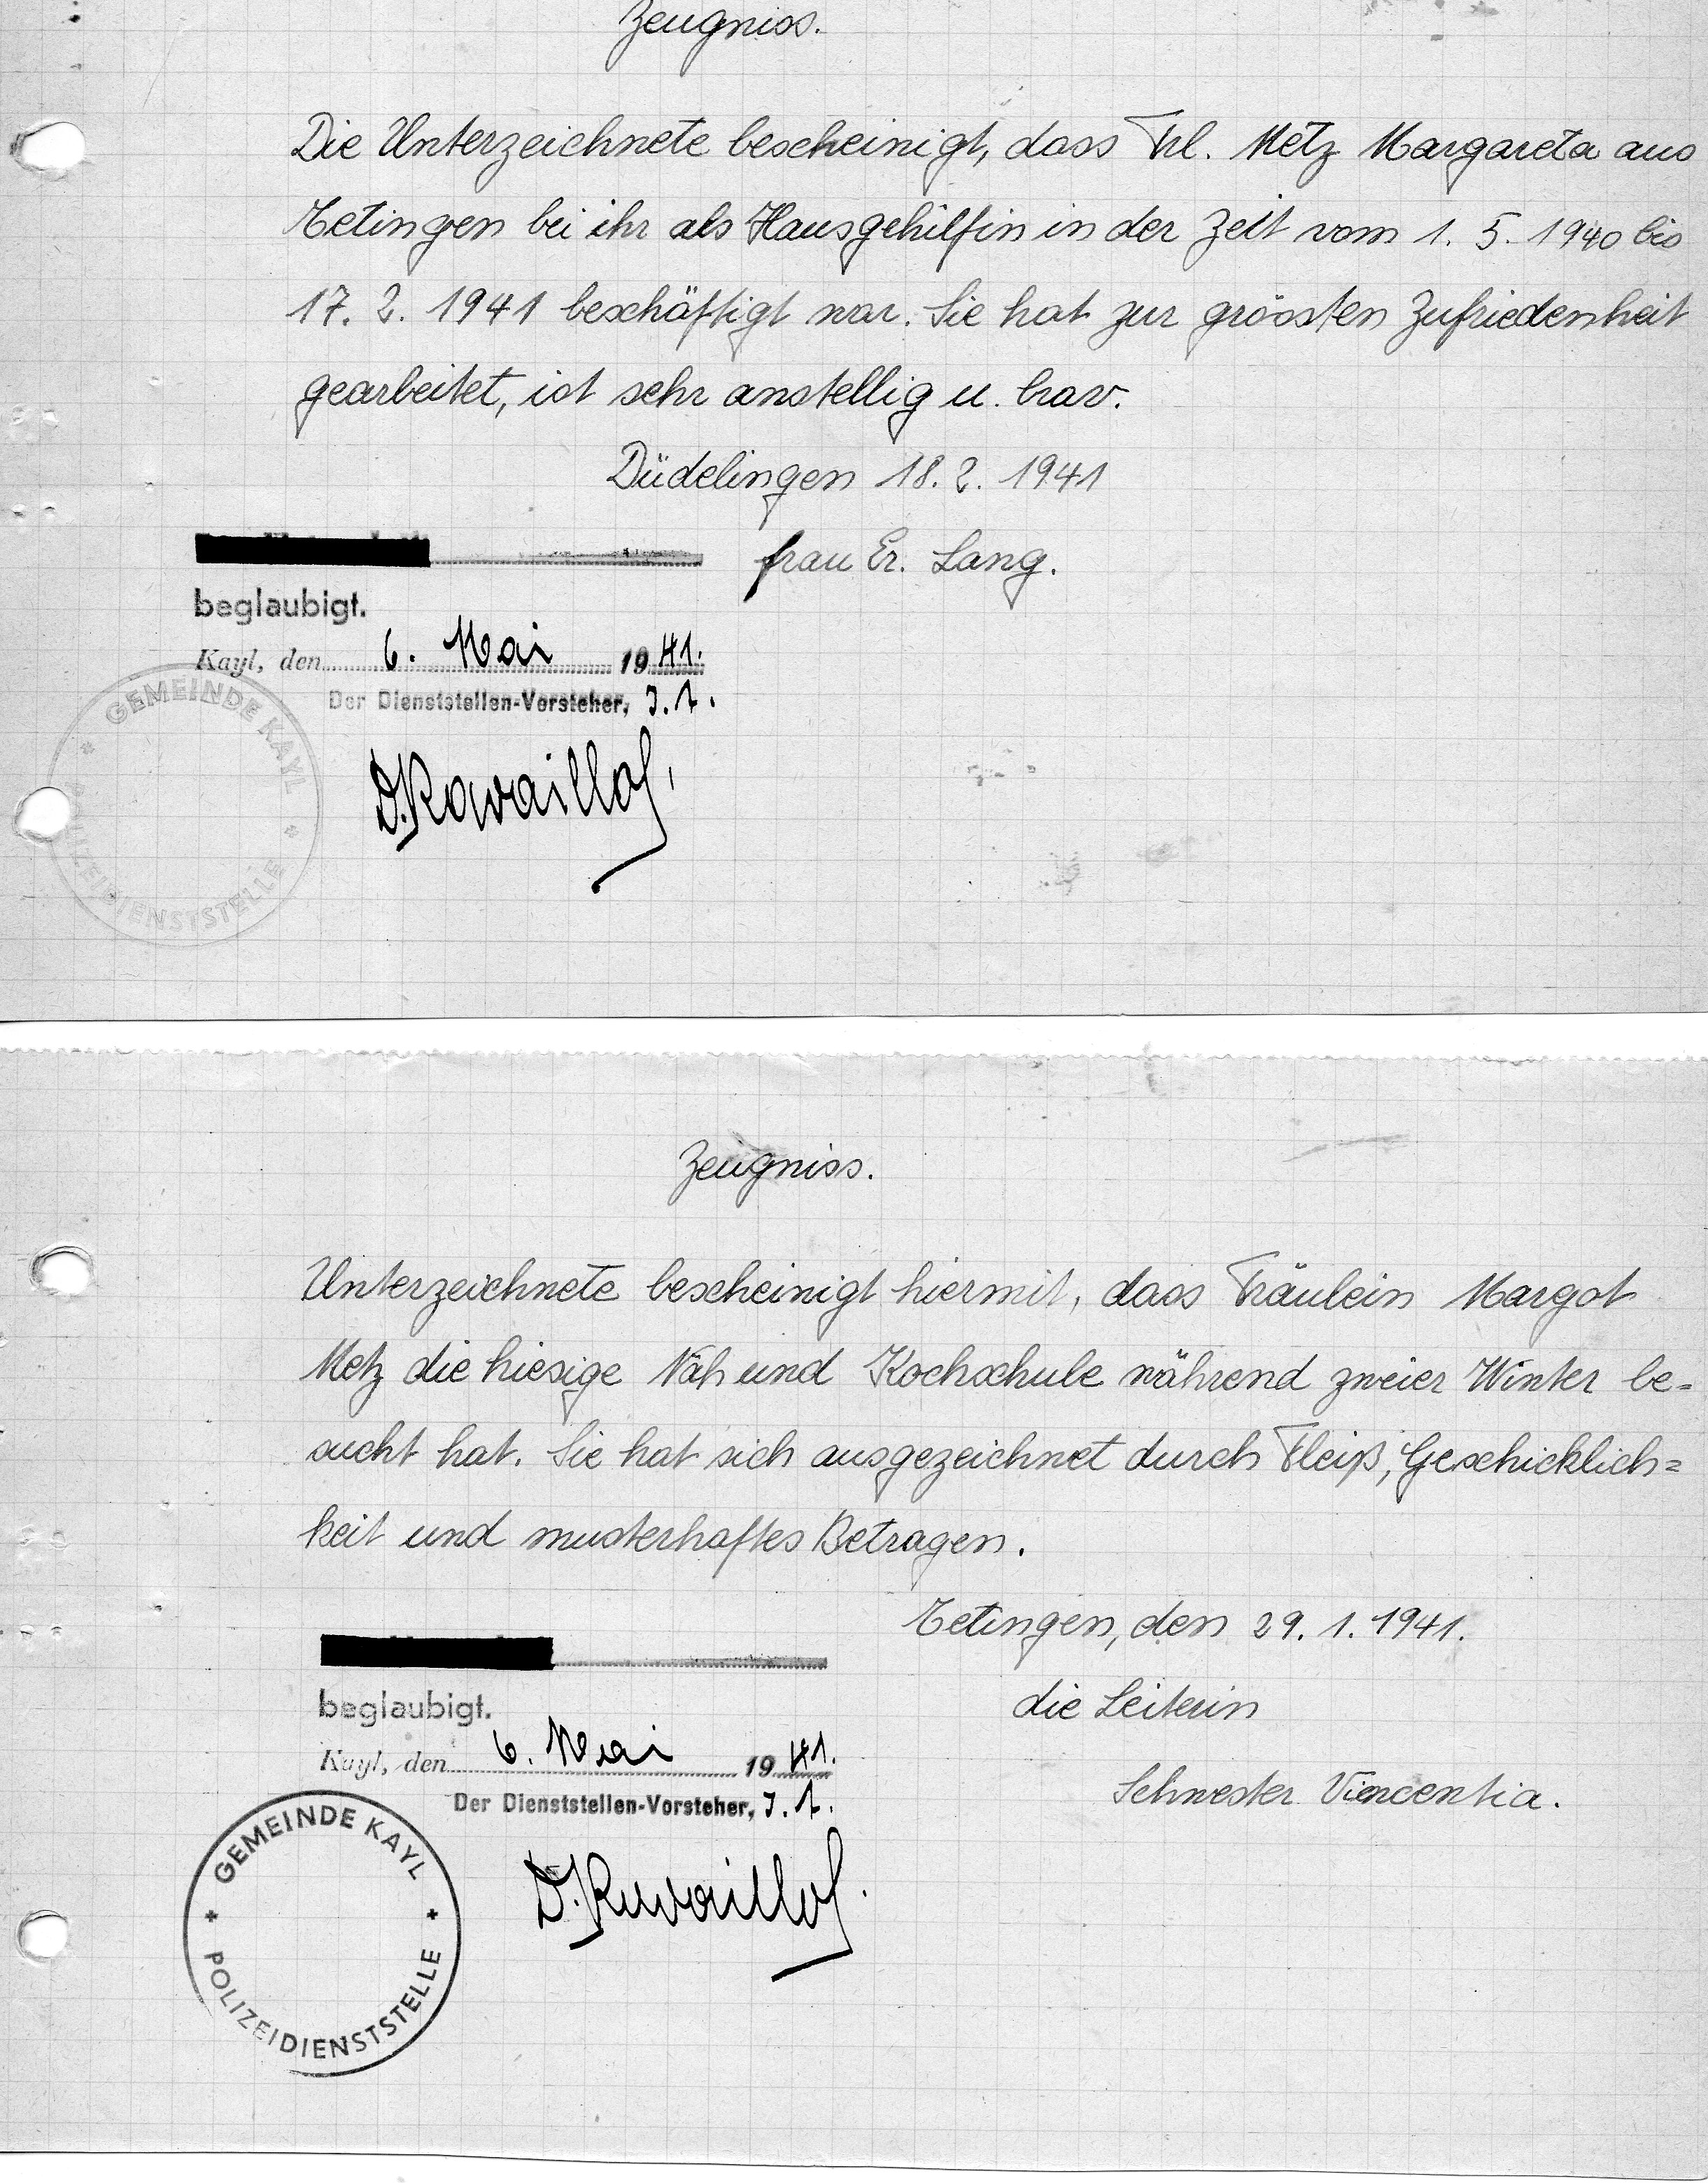 Zeugniss.
Die Unterzeichnete bescheinigt, dass Frl. Metz Margareta aus
Tetingen bei ihr als Hausgehilfin in der Zeit vom 1. 5. 1940 bis
17. 2. 1941 beschäftigt war. Sie hat zur grössten Zufriedenheit
gearbeitet, ist sehr anstellig u. brav.
Düdelingen 18. 2. 1941
frau Er. Lang.
beglaubigt.
Kayl, den 6. Mai 1941.
Der Dienststellen-Vorsteher,
GEMEINDE KAYL
POLIZEIDIENSTSTELLE
Zeugniss.
Unterzeichnete bescheinigt hiermit, dass Fräulein Margot
Metz die hiesige Näh und Kochschule während zweier Winter be=
sucht hat. Sie hat sich ausgezeichnet durch Fleiß, Geschicklich=
keit und musterhaftes Betragen.
Tetingen, den 29. 1. 1941.
die Leiterin
Schwester Viencentia.
beglaubigt.
Kayl, den 6. Mai 1941.
Der Dienststellen-Vorsteher,
GEMEINDE KAYL
POLIZEIDIENSTSTELLE